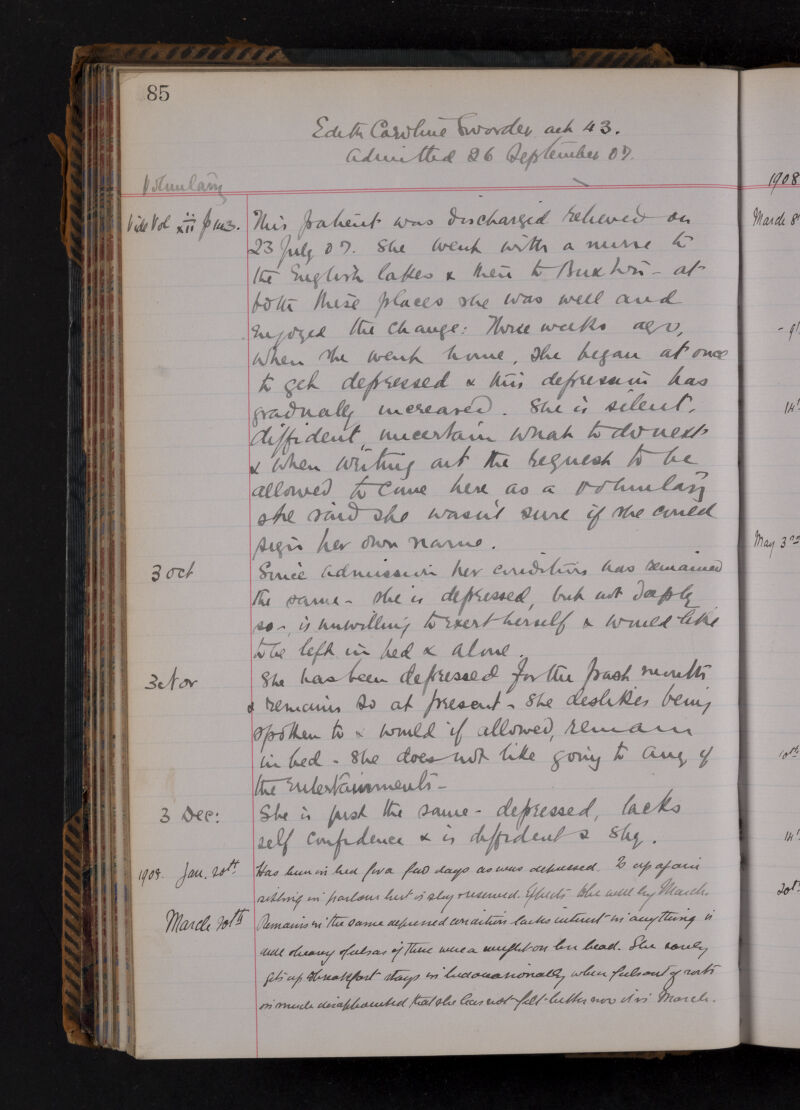 85
Edith Caroline Sworder aet 43.
Admitted 26 September 07.
Voluntary
1908
Vide Vol xii p 113. This patient was discharged relieved on
23 July 07. She went with a nurse to
the English lakes & then to Buxton - at
both these places she was well and
enjoyed the change: Three weeks ago,
when she went home, she began at once
to get depressed & this depression has
gradually increased. She is silent,
diffident, uncertain what to do next
& when writing out the request to be
allowed to come here as a voluntary
she said she wasn't sure if she could
sign her own name.
3 Oct Since admission her condition has remained
the same - she is depressed, but not deeply
so -, is unwilling to exert herself & would like
to be left in bed & alone.
3 Nov She has been depressed for the past month
& remains so at present - She dislikes being
spoken to & would if allowed, remain
in bed - She does not like going to any of
the entertainments -
3 Dec: She is just the same - depressed, lacks
self confidence & is diffident & shy.
1908 Jan. 20th Has been in bed for a few days as was depressed. Is up again
sitting in parlour but is shy & reserved. Expects to be well by March.
March 20th Remains in the same depressed condition lacks interest in anything is
dreary feels as if there were a weight on her head. She rarely
gets up to breakfast stays in bed occasionally when feels out of sorts
is much disappointed that she has not felt better now it is March.
March 8
14th
May 3rd
10th
14th
20th